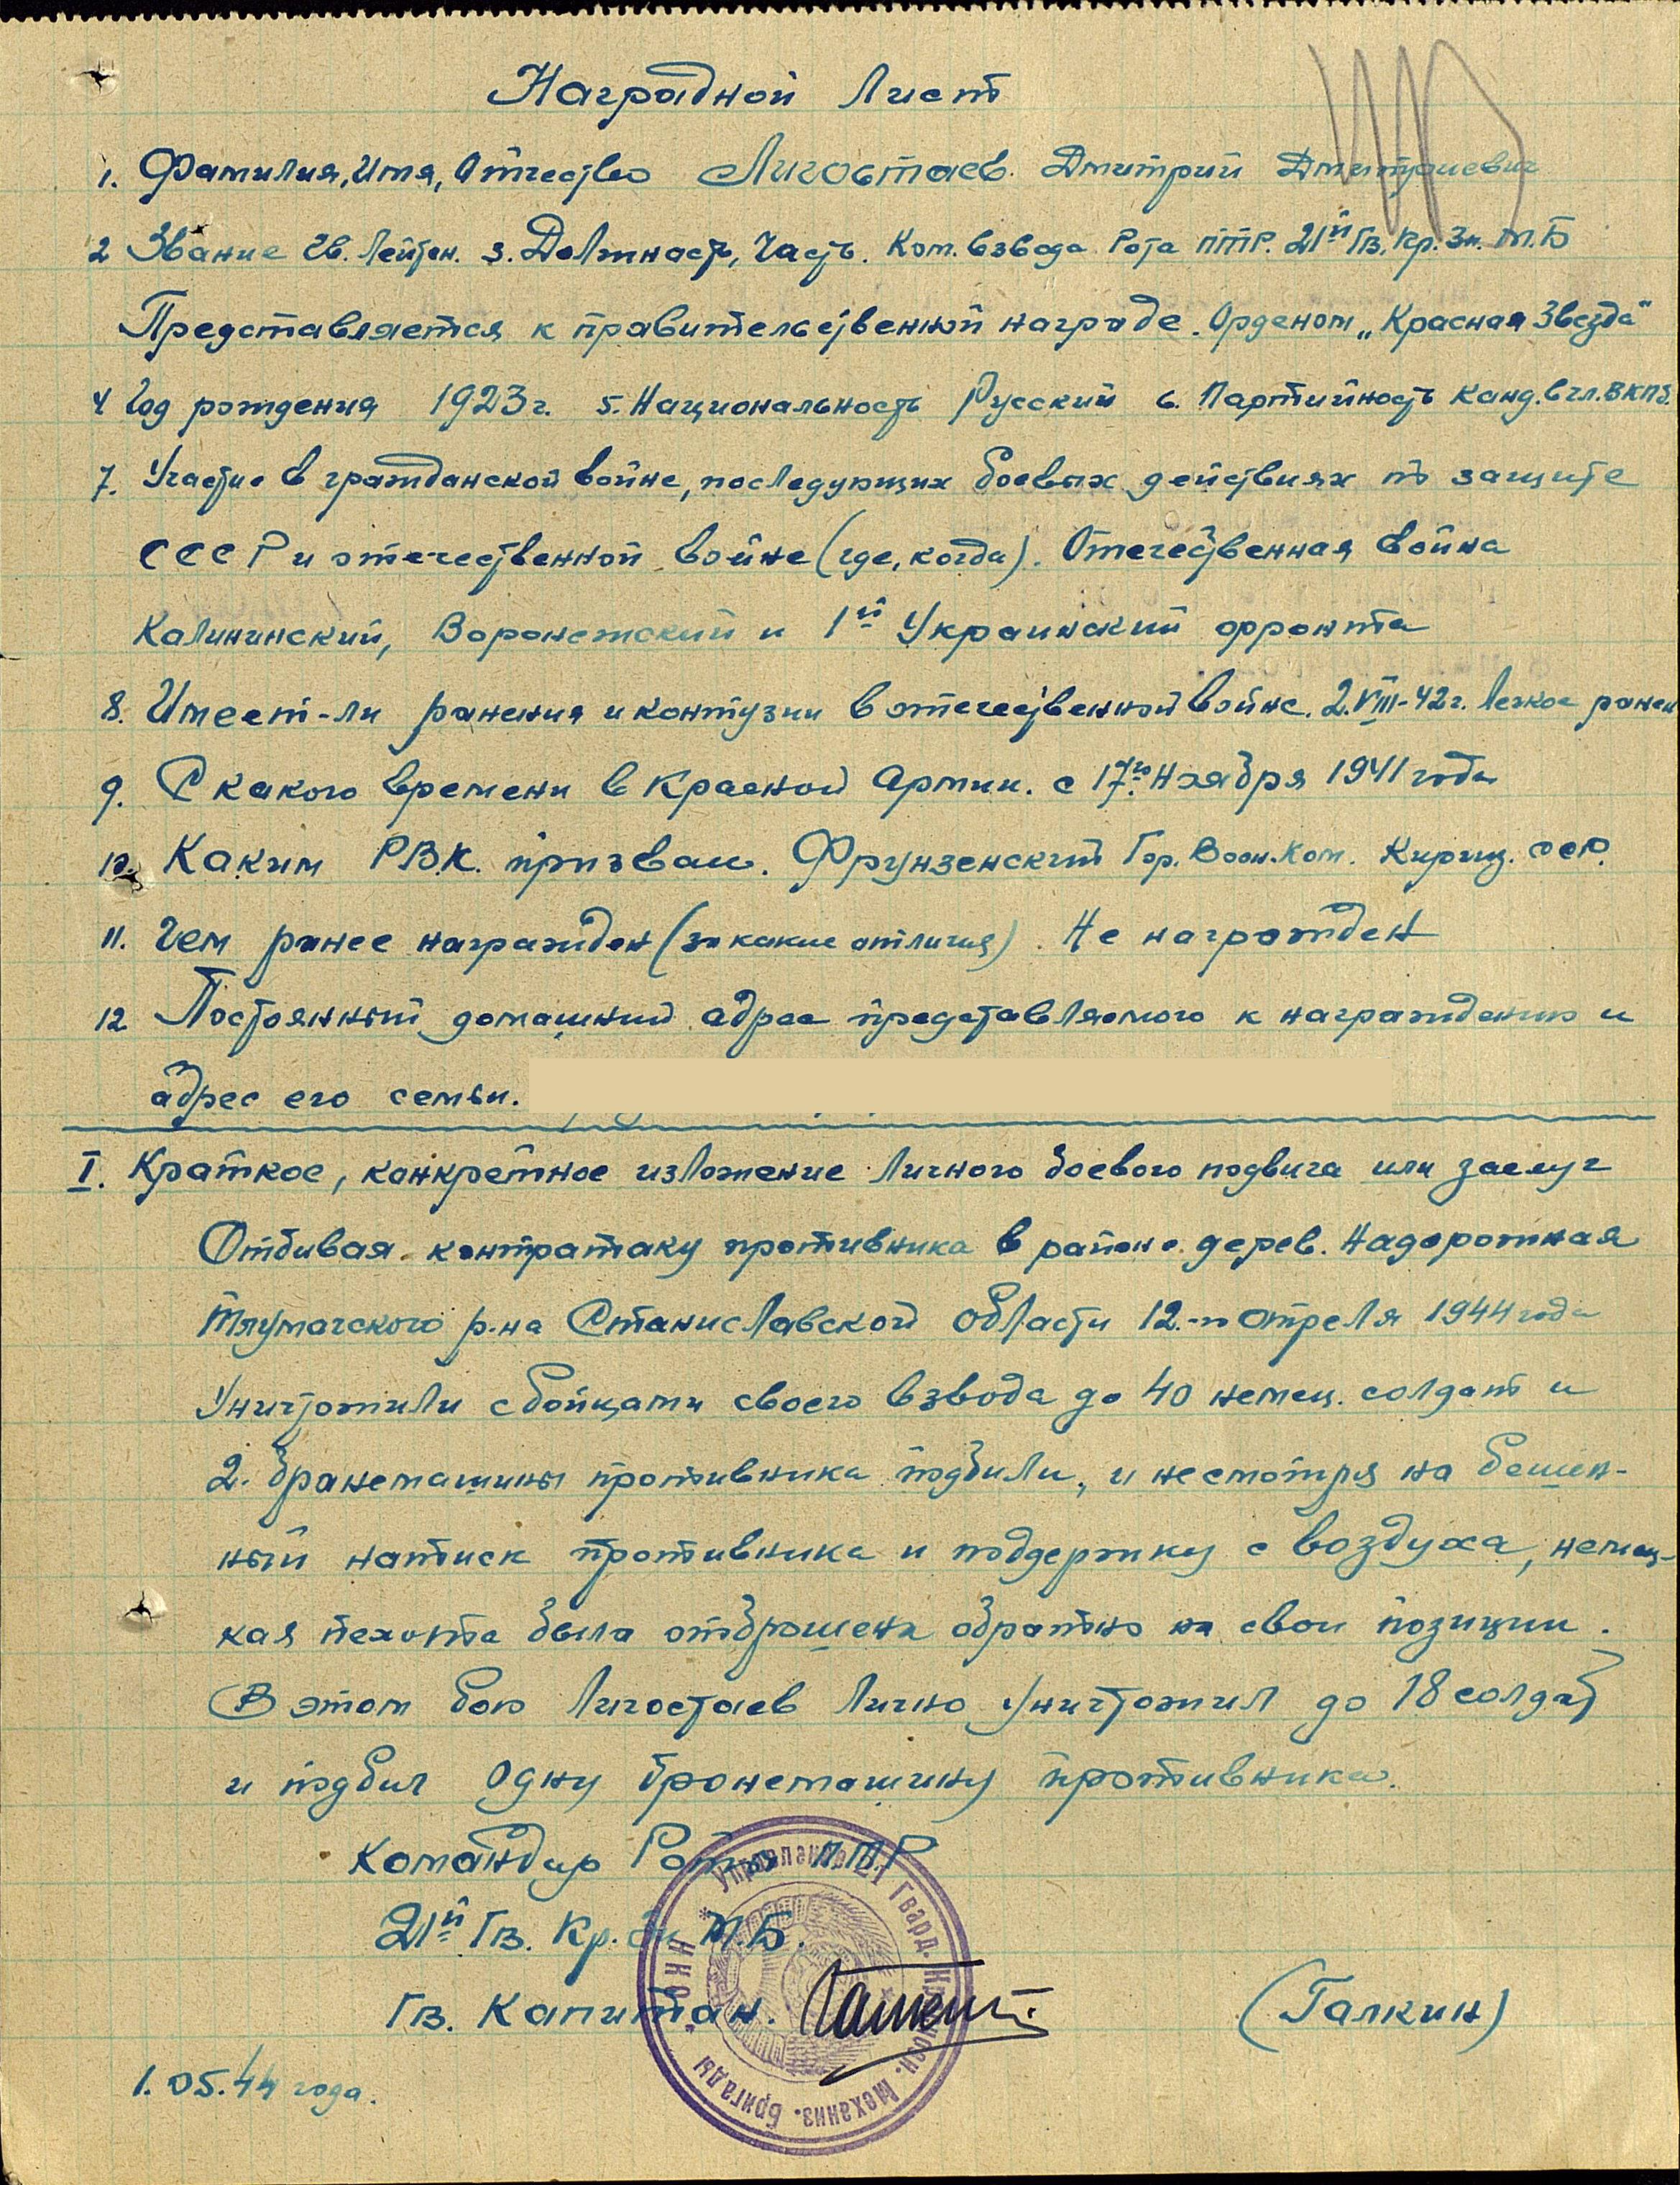 Наградной Лист
1. Фамилия, Имя, Отчество Лигостаев Дмитрий Дмитриевич
2 Звание Гв. Лейтен. 3. Должность, Часть. Ком. взвода Рота ПТР. 21й Гв. Кр. Зн. М.Б
Представляется к правительственной награде. Орденом „Красная Звезда"
4 Год рождения 1923г. 5. Национальность Русский 6. Партийность Канд. в чл. ВКПб.
7. Участие в гражданской войне, последующих боевых действиях по защите
СССР и отечественной войне (где, когда). Отечественная война
Калининский, Воронежский и 1й Украинский фронта
8. Имеет-ли ранения и контузии в отечественной войне. 2.VIII-42г. Легкое ранен
9. С какого времени в Красной Армии. с 17го Ноября 1941 года
10. Каким Р.В.К. призван. Фрунзенский Гор. Воен. Ком. Киргиз. ССР.
11. Чем ранее награжден (за какие отличия). Не награжден
12 Постоянный домашний адрес представляемого к награждению и
адрес его семьи.
I. Краткое, конкретное изложение личного боевого подвига или заслуг
Отбивая контратаку противника в районе дерев. Надорожная
Тлумачского р-на Станиславской области 12-го апреля 1944 года
Уничтожили с бойцами своего взвода до 40 немец. солдат и
2. бронемашины противника подбили, и несмотря на бешен-
ный натиск противника и поддержку с воздуха, немец-
кая пехота была отброшена обратно на свои позиции.
В этом бою Лигостаев Лично Уничтожил до 18 солдат
и подбил одну бронемашину противника.
Командир Роты П.Т.Р
21й Гв. Кр. Зн М.Б.
Гв. Капитан. Галкин (Галкин)
1.05.44 года.
* Управление 21 Гвард. Краснозн. Механиз. Бригады * НКО